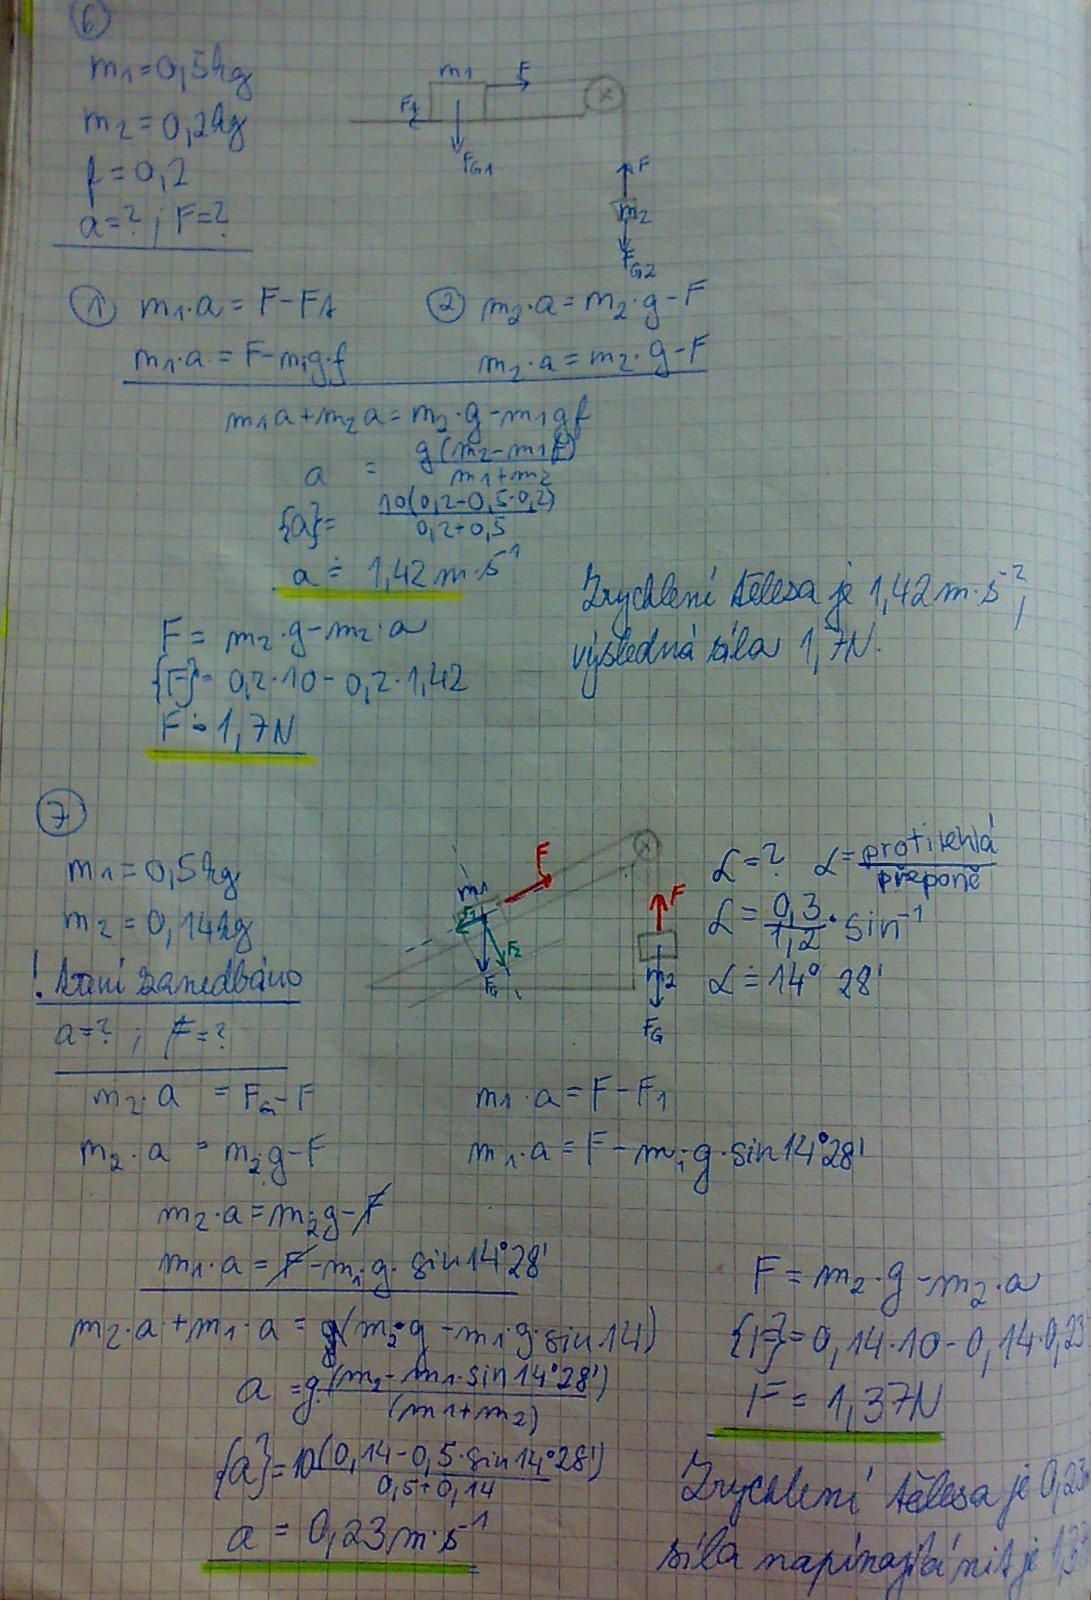 6
m1=0,5kg
m2=0,2kg
f=0,2
a=? ; F=?
m1
F
Ft
FG1
F
m2
FG2
① m1·a = F-Ft
② m2·a = m2·g-F
m1·a = F-m1g·f
m2·a = m2·g-F
m1a+m2a = m2·g-m1gf
a = g(m2-m1f)/m1+m2
{a}= 10(0,2-0,5·0,2)/0,2+0,5
a ≐ 1,42 m·s⁻¹
F = m2·g-m2·a
{F}= 0,2·10-0,2·1,42
F ≐ 1,7N
Zrychlení tělesa je 1,42 m·s⁻²,
výsledná síla 1,7N.
7
m1=0,5kg
m2=0,14kg
! tření zanedbáno
a=? ; F=?
m1
F
F1
F2
FG
F
m2
FG
α=? α= protilehlá/přeponě
α= 0,3/1,2 · sin⁻¹
α≐14° 28'
m2·a = FG-F
m1·a = F-F1
m2·a = m2·g-F
m1·a = F-m1·g·sin14°28'
m2·a=m2·g-F
m1·a = F-m1·g·sin14°28'
m2·a+m1·a = g(m2·g-m1·g·sin14)
a = g·(m2-m1·sin14°28')/(m1+m2)
{a}=10(0,14-0,5·sin14°28')/0,5+0,14
a = 0,23m·s⁻¹
F = m2·g-m2·a
{F}=0,14·10-0,14·0,23
F = 1,37N
Zrychlení tělesa je 0,23
síla napínající nit je 1,3